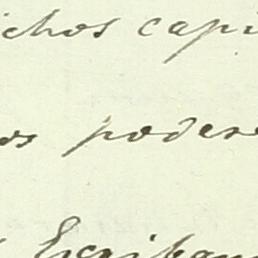 ichos capi
os podere
Escriban